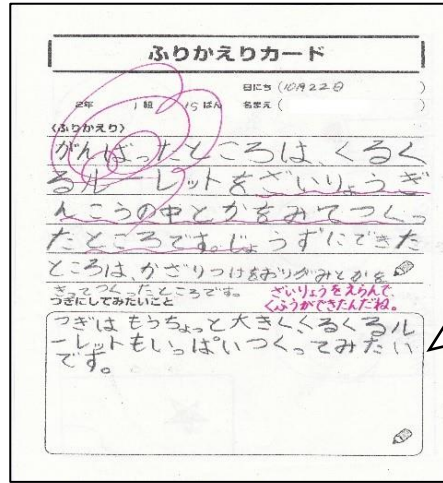 ふりかえりカード
日にち（10月22日　）
2年　1組　15ばん　名まえ（　）
〈ふりかえり〉
がんばったところは、くるく
るルーレットをざいりょうぎ
んこうの中とかをみてつくっ
たところです。じょうずにできた
ところは、かざりつけをおりがみとかを
きってつくったところです。
ざいりょうをえらんで
くふうができたんだね。
つぎにしてみたいこと
つぎはもうちょっと大きくくるくるル
ーレットもいっぱいつくってみたい
です。